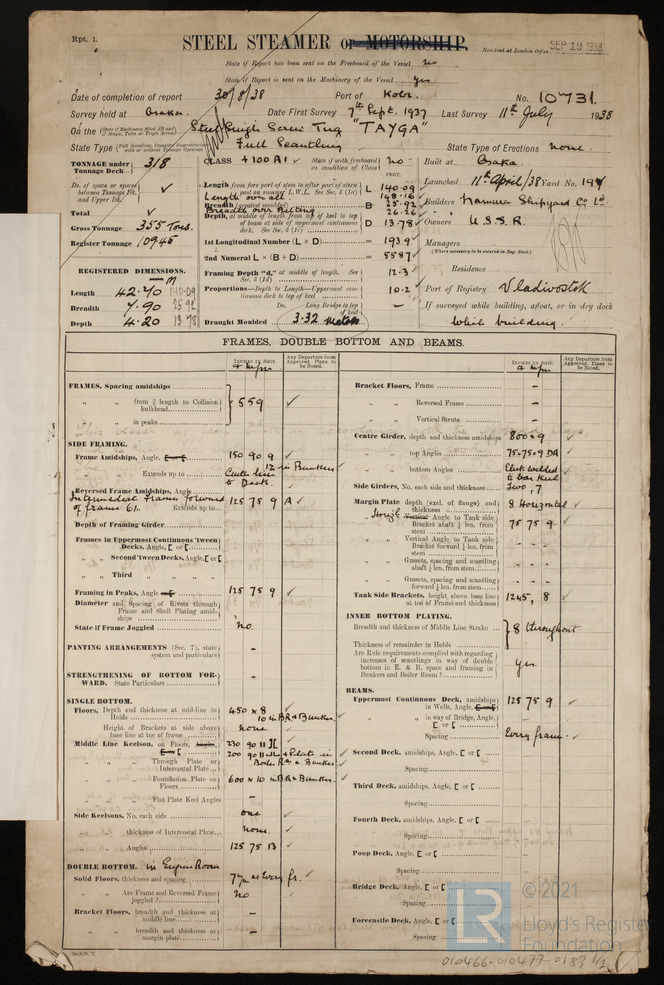 Rpt. 1.
STEEL STEAMER or MOTORSHIP.
Received at London Office SEP 19 1938
State if Report has been sent on the Freeboard of the Vessel no
State if Report is sent on the Machinery of the Vessel yes
Date of completion of report 30/8/38 Port of Kobe No. 10731
Survey held at Osaka Date First Survey 7th Sept. 1937 Last Survey 11th July 1938
On the (State if Machinery fitted Aft and if Single, Twin or Triple Screw) Steel Single Screw Tug "TAYGA"
State Type Full Scantling State Type of Erections None.
TONNAGE under Tonnage Deck 318
Do. of space or spaces between Tonnage Dk. and Upper Dk.
Total
Gross Tonnage 355 Tons.
Register Tonnage 109.45
REGISTERED DIMENSIONS.
M
Length 42.70 140.09
Breadth 7.90 25.92
Depth 4.20 13.78
CLASS +100A1 State if with freeboard as condition of Class no
FEET.
Length from fore part of stem to after part of stern post on summer L.W.L. See Sec. 3 (1a) L 140.09
Length over all. 148.16
Breadth (greatest moulded) B 25.92
Breadth over Belting 26.26
Depth, at middle of length from top of keel to top of beam at side of uppermost continuous deck. See Sec. 3 (1c) D 13.78
1st Longitudinal Number (L × D) = 1939
2nd Numeral L × (B + D) = 5587
Framing Depth "d," at middle of length. See Sec. 3 (1d) 12.3
Proportions—Depth to Length—Uppermost continuous deck to top of keel 10.2
Do. Long Bridge to top of keel —
Draught Moulded 3.32 metres
Built at Osaka
Launched 11th April/38 Yard No.
Builders Namura Shipyard Co Ld
Owners U.S.S.R.
Managers
(Where necessary to be entered in Reg. Book)
Residence
Port of Registry Vladivostok
If surveyed while building, afloat, or in dry dock
While building.
FRAMES, DOUBLE BOTTOM AND BEAMS.
Any Departure from Approved Plans to be Noted.
FRAMES, Spacing amidships
" " from ⅗ length to Collision bulkhead 559
" " in peaks
SIDE FRAMING.
Frame Amidships, Angle, 150 90 9
12 in Bunkers
" " Extends up to Centre line to Deck.
Reversed Frame Amidships, Angle
Intermediate Frames forward of frame 61. 125 75 9 A
Extends up to
Depth of Framing Girder
Frames in Uppermost Continuous 'tween Decks, Angle, [ or [
" " Second 'tween Decks, Angle, [ or [
" " Third " "
Framing in Peaks, Angle 125 75 9
Diameter and Spacing of Rivets through Frame and Shell Plating amidships
State if Frame Joggled no.
PANTING ARRANGEMENTS (Sec. 7), state system and particulars -
STRENGTHENING OF BOTTOM FORWARD. State Particulars -
SINGLE BOTTOM.
Floors, Depth and thickness at mid-line in Holds 450 × 8
10 in BR & Bunker.
Height of Brackets at side above base line at toe of frame none
Middle Line Keelson, on Floors, Angles, 230 90 11 ][
" " Through Plate or Intercostal Plate 200 90 11 & Plate in Boiler Rm & Bunker
" " Foundation Plate on Floors 600 × 10 in BR & Bunker.
" " Flat Plate Keel Angles -
Side Keelsons, No. each side one
" " thickness of Intercostal Plate none.
" " Angles 125 75 13
DOUBLE BOTTOM. in Engine Room
Solid Floors, thickness and spacing 7 m at every fr.
" " Are Frame and Reversed Frame joggled? no
Bracket Floors, breadth and thickness at middle line -
" " breadth and thickness at margin plate -
Bracket Floors, Frame -
" " Reversed Frame -
" " Vertical Struts -
Centre Girder, depth and thickness amidships 800 × 9
" " top Angles 75-75×9 DA
" " bottom Angles Elect welded to bar keel
Side Girders, No. each side and thickness Two, 7
Margin Plate depth (excl. of flange) and thickness 8 Horizontal
" " Vertical Angle to Tank side Bracket abaft ¼ len. from stem 75 75 9
" " Vertical Angle to Tank side Bracket forward ¼ len. from stem - - -
" " Gussets, spacing and scantling abaft ¼ len. from stem - - -
" " Gussets, spacing and scantling forward ¼ len. from stem - - -
Tank Side Brackets, height above base line at toe of Frame and thickness 1245, 8
INNER BOTTOM PLATING.
Breadth and thickness of Middle Line Strake 8 throughout
Thickness of remainder in Holds
Are Rule requirements complied with regarding increases of scantlings in way of double bottom in E. & B. space and framing in Bunkers and Boiler Room? yes.
BEAMS.
Uppermost Continuous Deck, amidships in Wells, Angle, 125 75 9
" " in way of Bridge, Angle, [ or [ -
Spacing Every frame.
Second Deck, amidships, Angle, [ or [
Spacing
Third Deck, amidships, Angle, [ or [
Spacing
Fourth Deck, amidships, Angle, [ or [
Spacing
Poop Deck, Angle, [ or [
Spacing
Bridge Deck, Angle, [ or [
Spacing
Forecastle Deck, Angle, [ or [
Spacing
LR
© 2021
Lloyd's Register
Foundation
010466-010477-0183 1/2